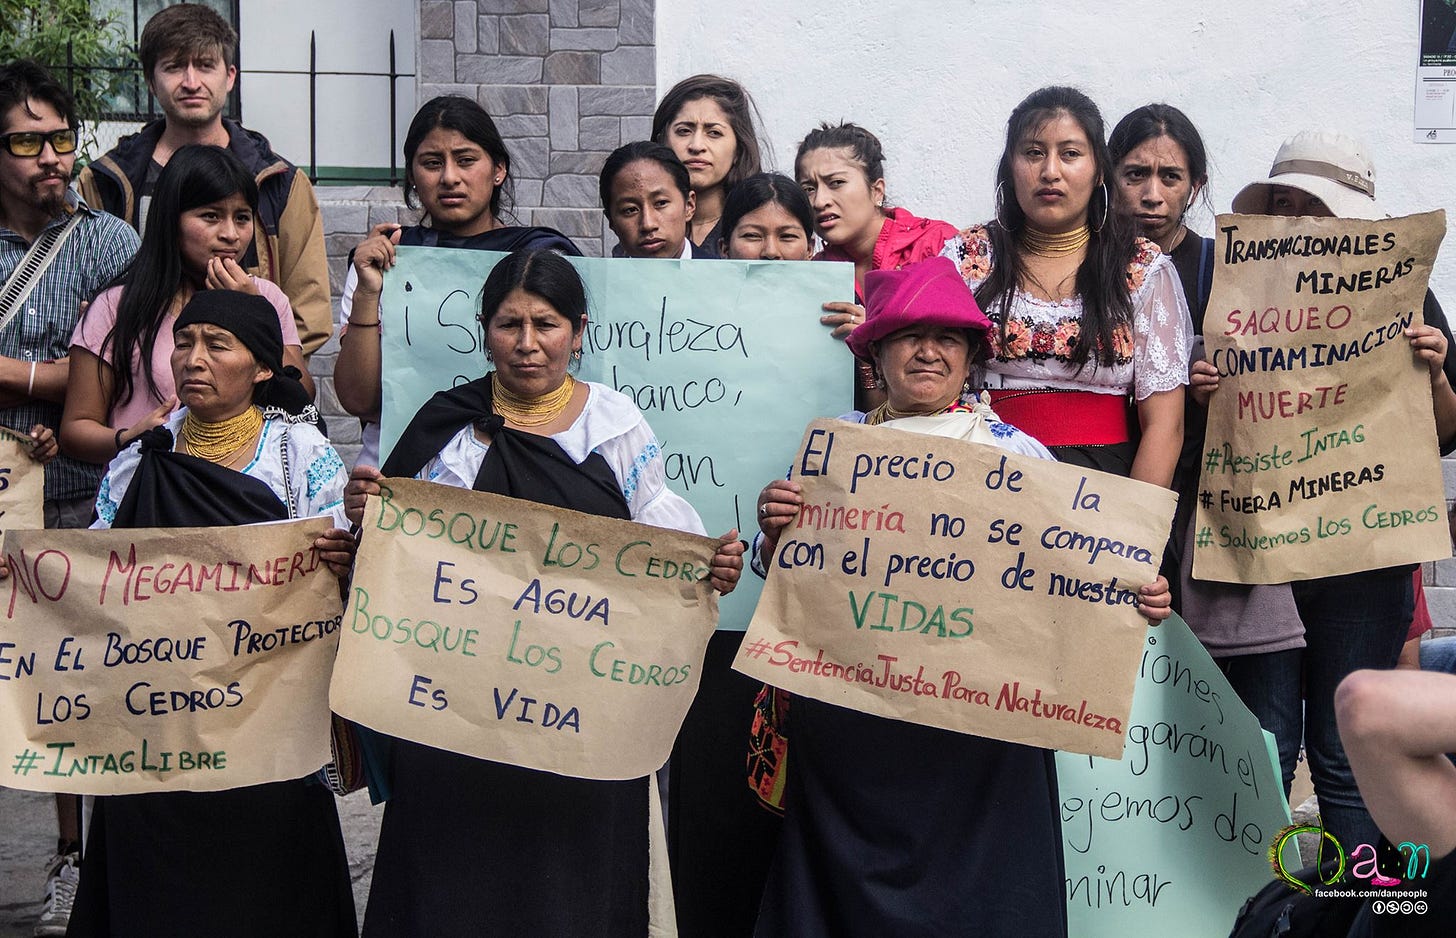 ¡ Si
uraleza
banco,
án
NO MEGAMINERI
EN EL BOSQUE PROTECTOR
LOS CEDROS
#INTAG LIBRE
BOSQUE LOS CEDRO
ES AGUA
BOSQUE LOS CEDROS
ES VIDA
El precio de la
minería no se compara
con el precio de nuestra
VIDAS
#SentenciaJustaParaNaturaleza
TRANSNACIONALES
MINERAS
SAQUEO
CONTAMINACIÓN
MUERTE
#Resiste INTAG
#FUERA MINERAS
#SALVEMOS LOS CEDROS
iones
garán el
ejemos de
minar
Dan
facebook.com/danpeople